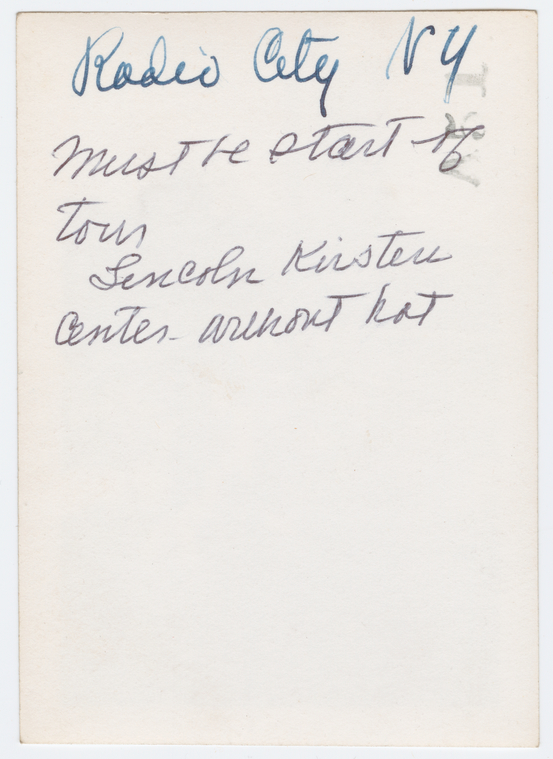 Radio City NY
Must be start of
tour
Lincoln Kirstein
Center without hat